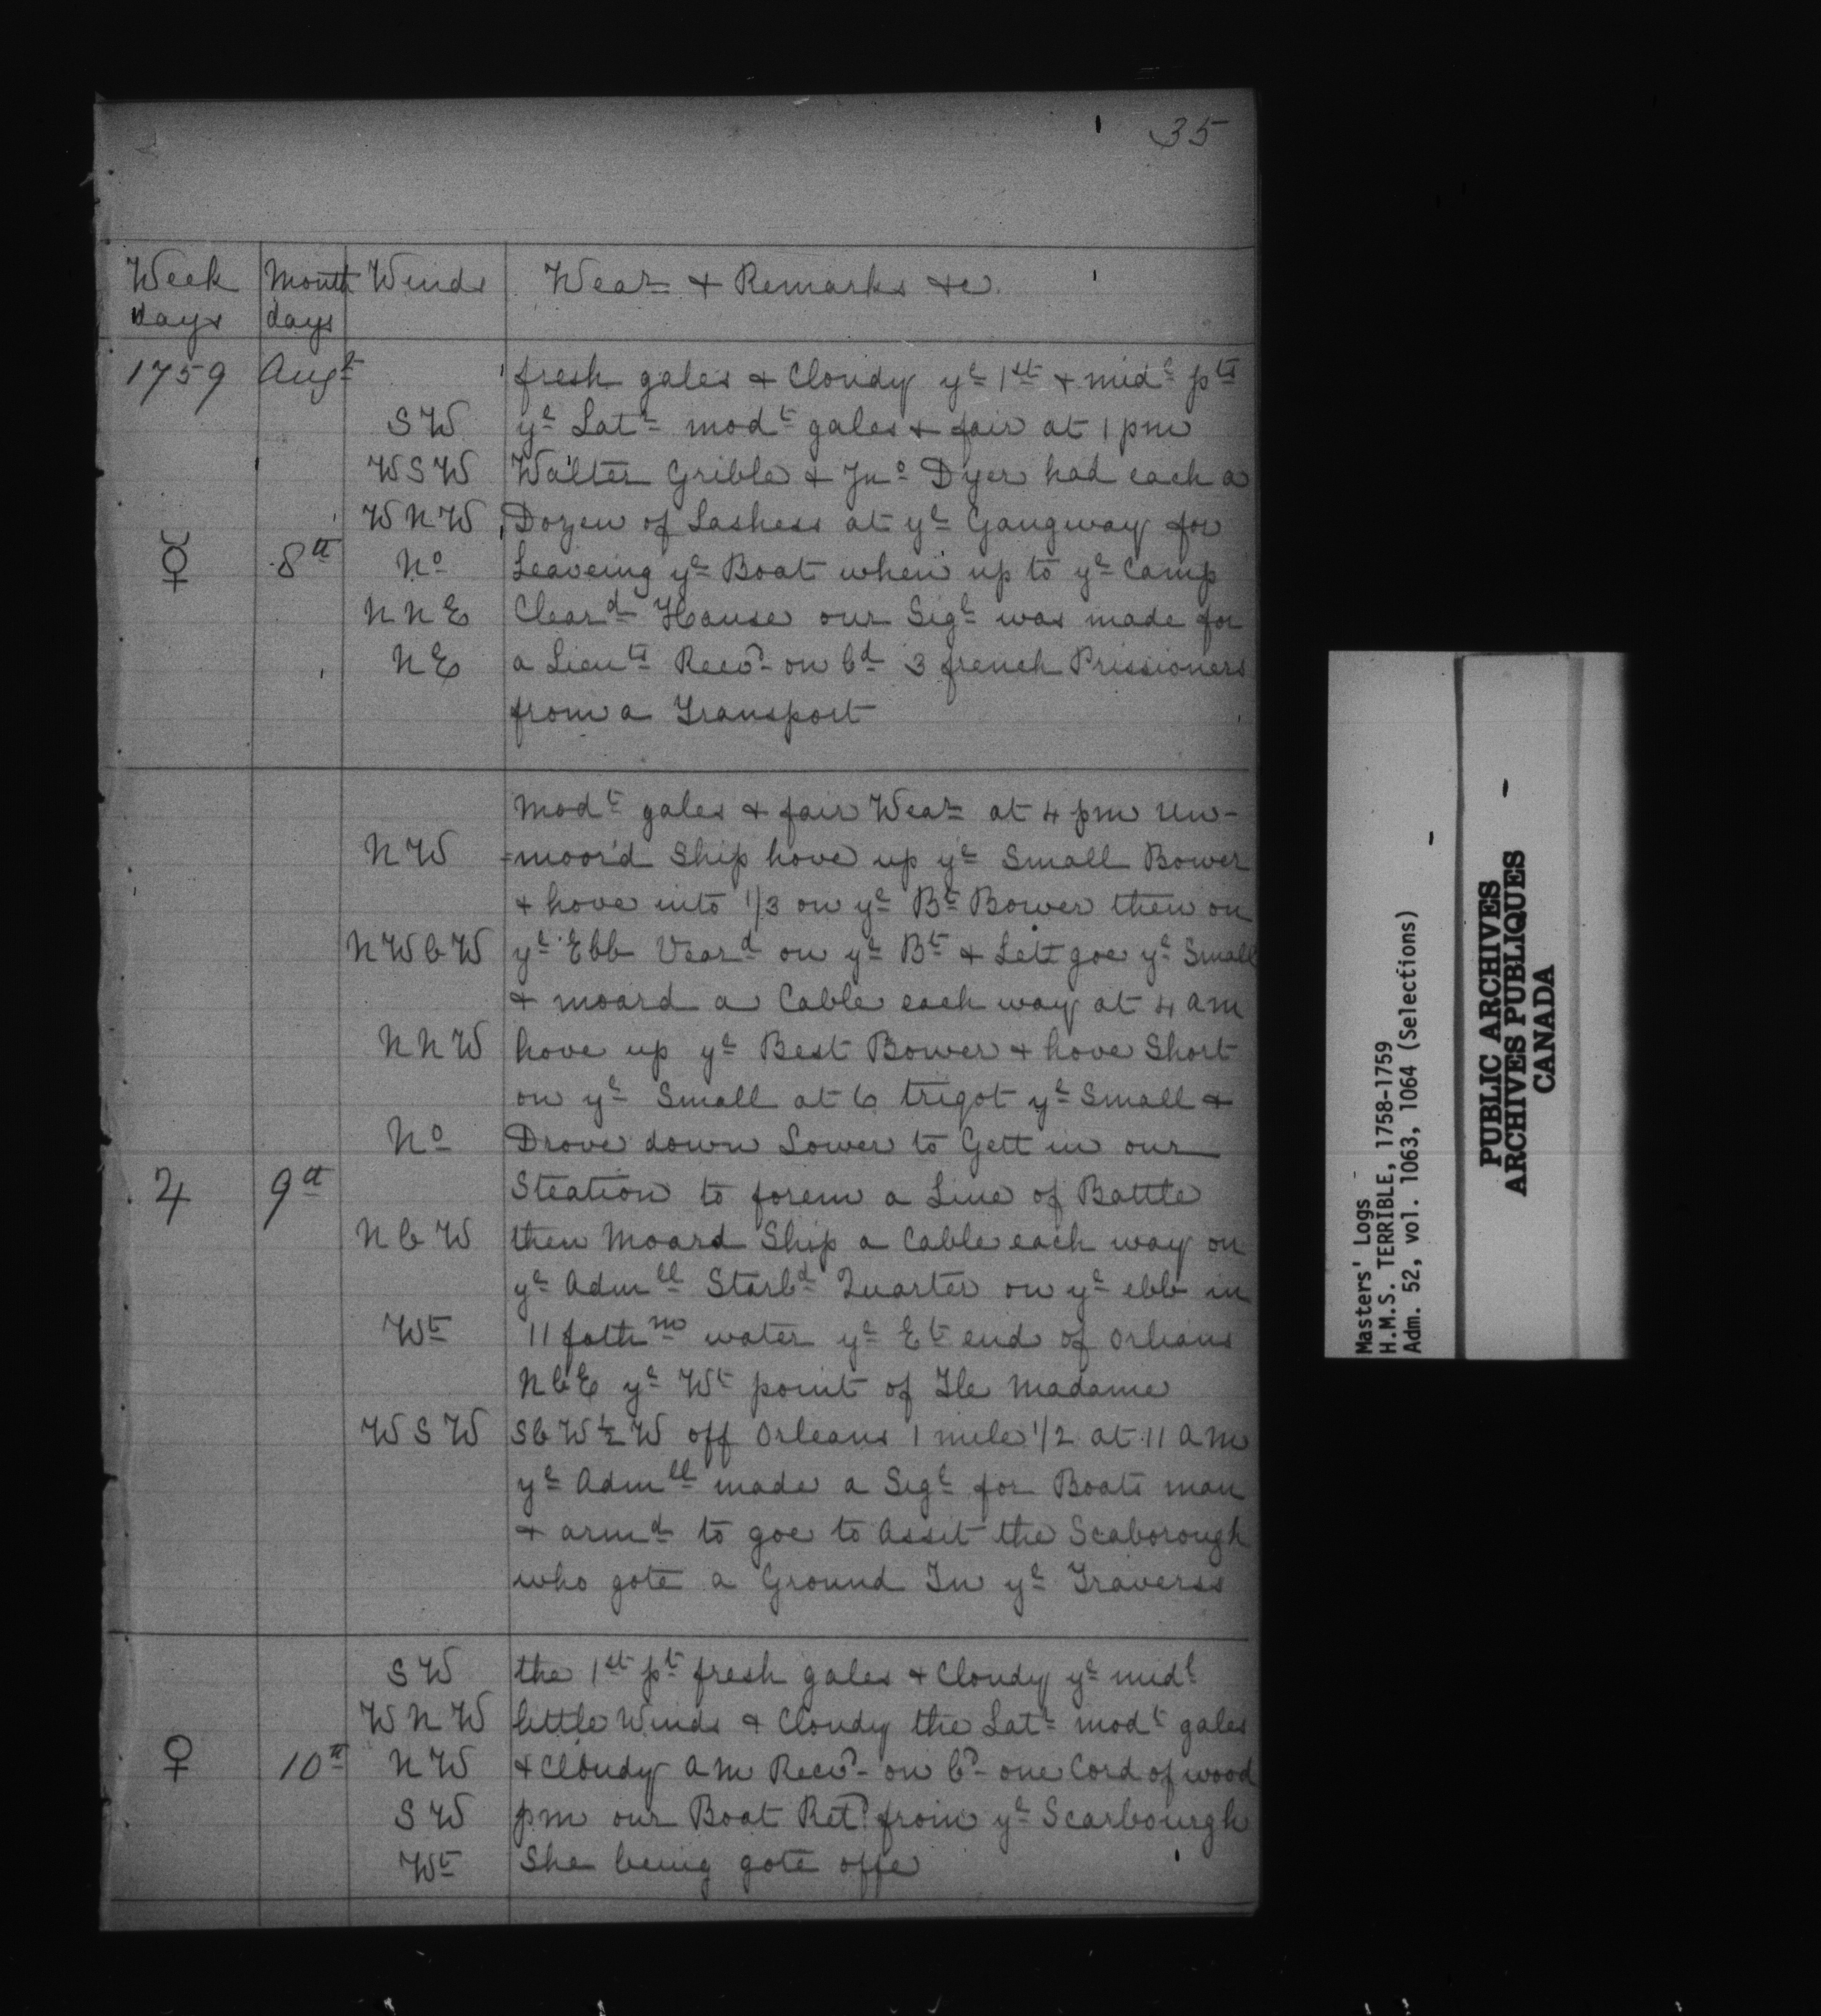 35
Week days | Month days | Winds | Wear & Remarks &c.
1759 | Augt | | fresh gales & Cloudy ye 1st & midl pts
SW | ye Latr modt gales & fair at 1 pm
WSW | Walter Grible & Jno Dyer had each a
WNW | Dozen of Lashess at ye Gangway for
☿ | 8th | No | Leaveing ye Boat when up to ye Camp
NNE | Cleard Hause our Sigl was made for
NE | a Lieuts Recvd on bd 3 french Prissioners
from a Transport
Modt gales & fair Wear at 4 pm Un-
NW | =moor'd Ship hove up ye Small Bower
& hove into 1/3 on ye Bt Bower then on
NWbW | ye Ebb Veard on ye Bt & Lett goe ye Small
& moard a Cable each way at 4 am
NNW | hove up ye Best Bower & hove Short
on ye Small at 6 trigot ye Small &
No | Drove down Lower to Gett in our
♃ | 9th | | Steation to forem a Line of Battle
NbW | then Moard Ship a Cable each way on
ye Admll Starbd Quarter on ye ebb in
Wt | 11 fathm water ye Et end of Orleans
NbE ye Wt point of Ile Madame
WSW | SbW½W off Orleans 1 mile 1/2 at 11 am
ye Admll made a Sigl for Boats man
& armd to goe to Assit the Scaborough
who gote a Ground In ye Traverss
SW | the 1st pt fresh gales & Cloudy ye midl
WNW | little Winds & Cloudy the Latr modt gales
♀ | 10th | NW | & Cloudy am Recvd on bd one Cord of wood
SW | pm our Boat Retd from ye Scarbourgh
Wt | She being gote offe
Masters' Logs
H.M.S. TERRIBLE, 1758-1759
Adm. 52, vol. 1063, 1064 (Selections)
PUBLIC ARCHIVES
ARCHIVES PUBLIQUES
CANADA